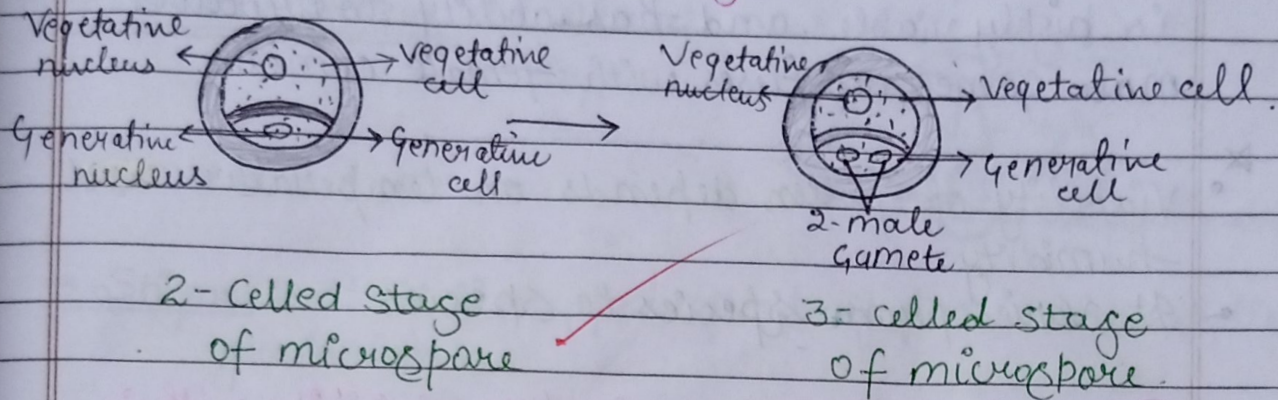 Vegetative
nucleus
vegetative
cell
Generative
nucleus
Generative
cell
Vegetative
nucleus
Vegetative cell.
Generative
cell
2-male
Gamete
2-Celled stage
of microspore
3-celled stage
of microspore.